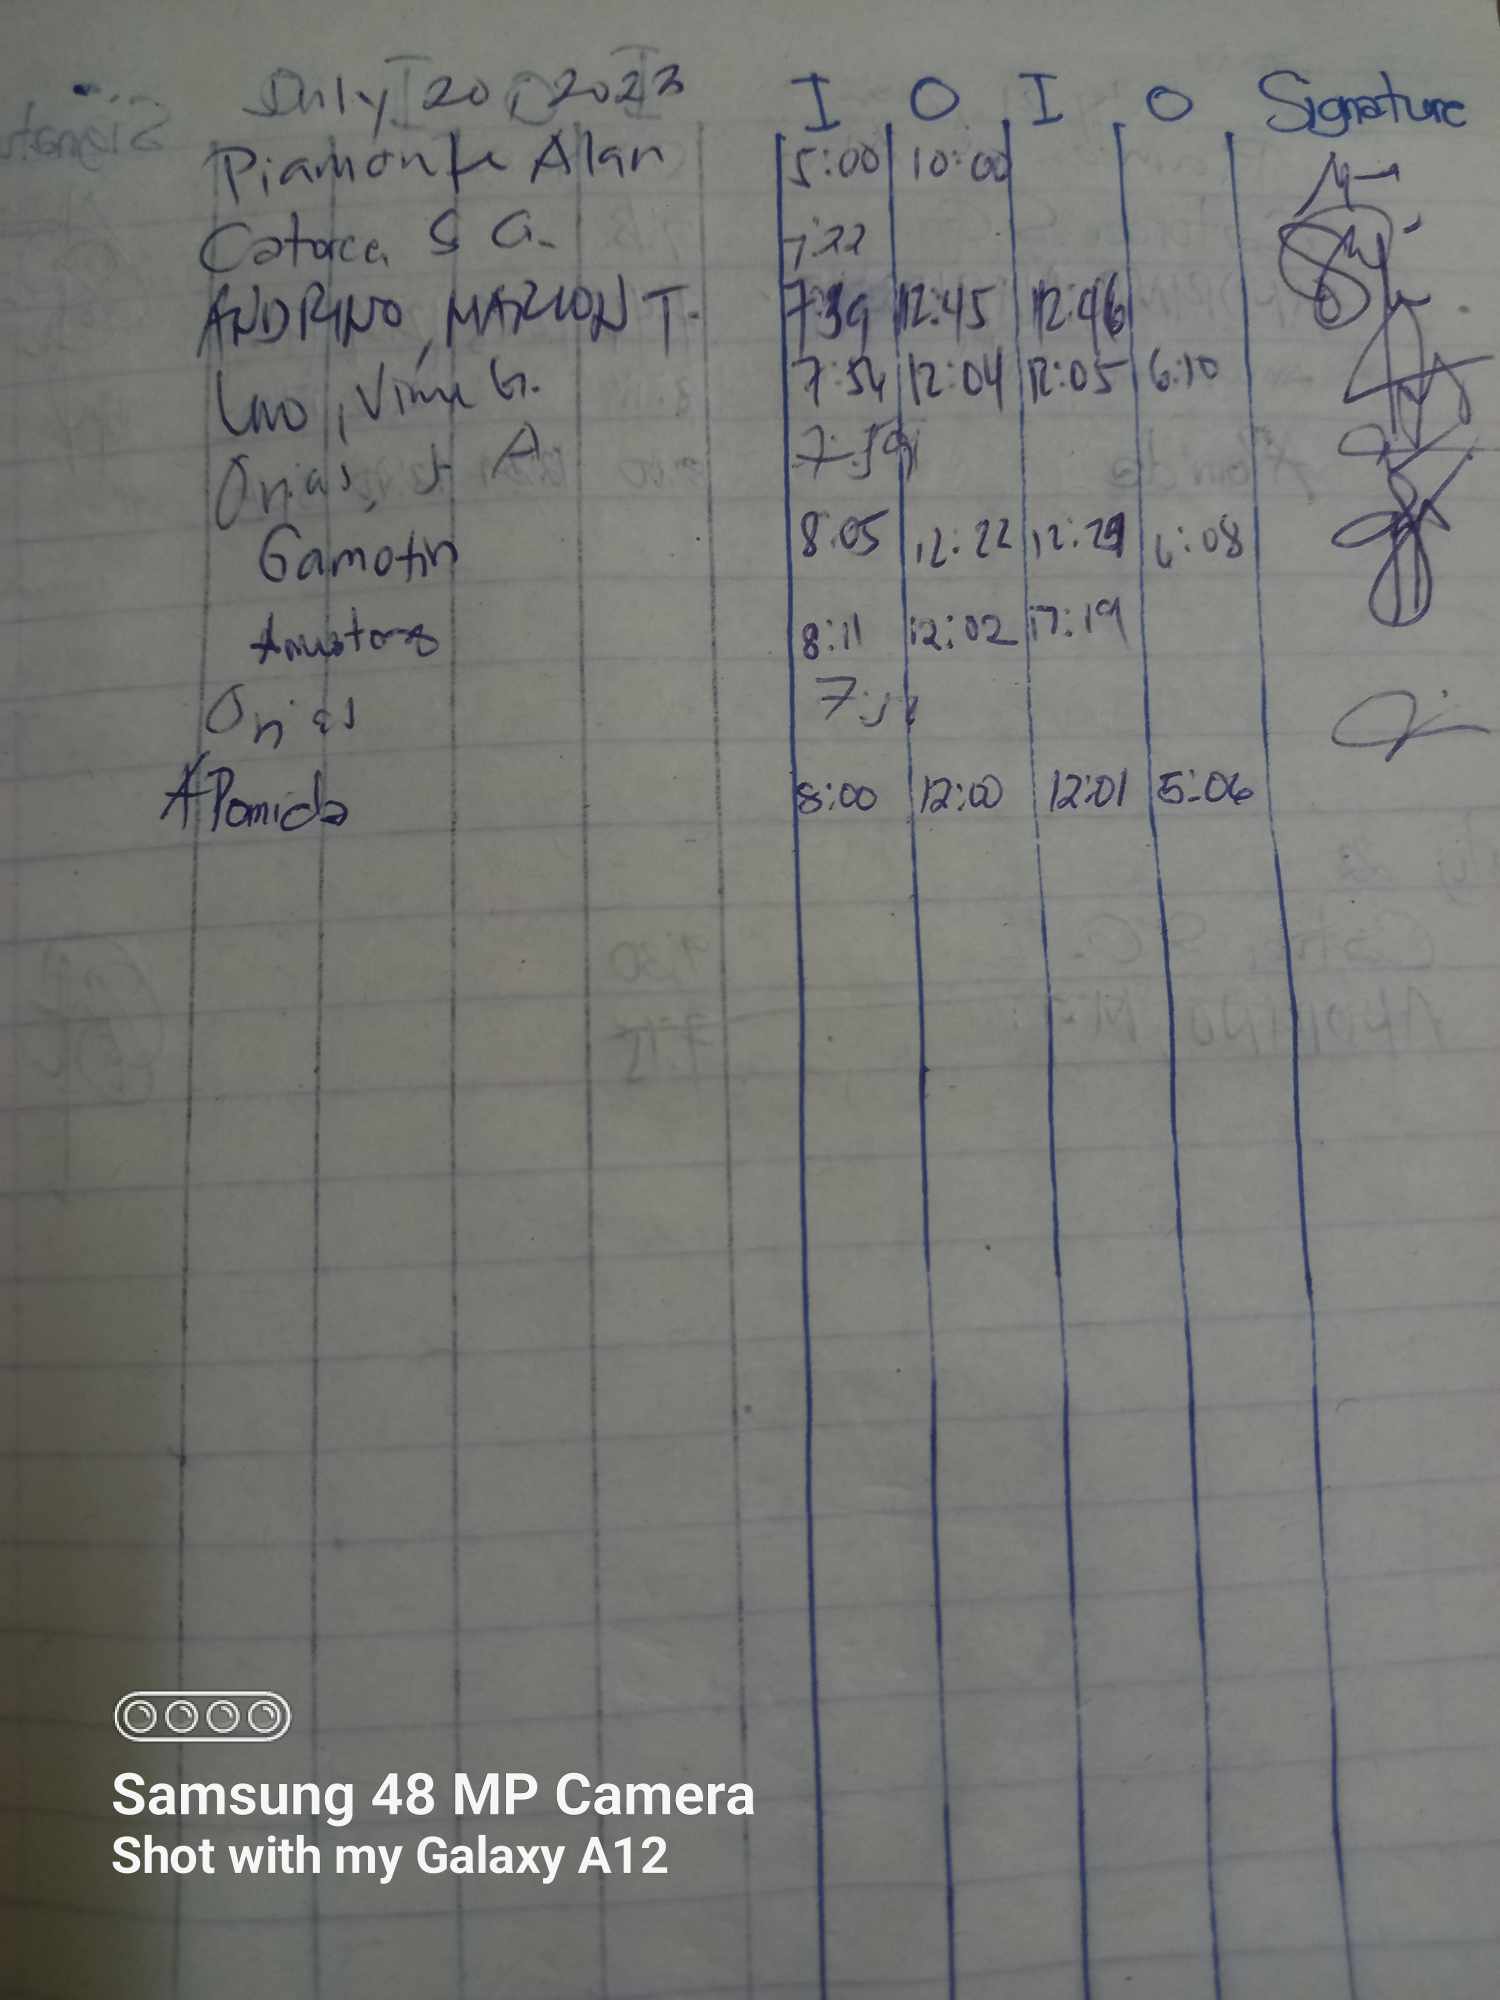 July 20, 2023 I O I O Signature
Piamonte Alan 5:00 10:00
Catorce, S G. 7:22
ANDRINO, MARLON T. 7:39 12:45 12:46
G. 7:54 12:04 12:05 6:10
Orias, J A 7:59
Gamotin 8:05 12:22 12:29 6:08
8:11 12:02 12:19
Orias
A Pamida 8:00 12:00 12:01 5:06
Samsung 48 MP Camera
Shot with my Galaxy A12